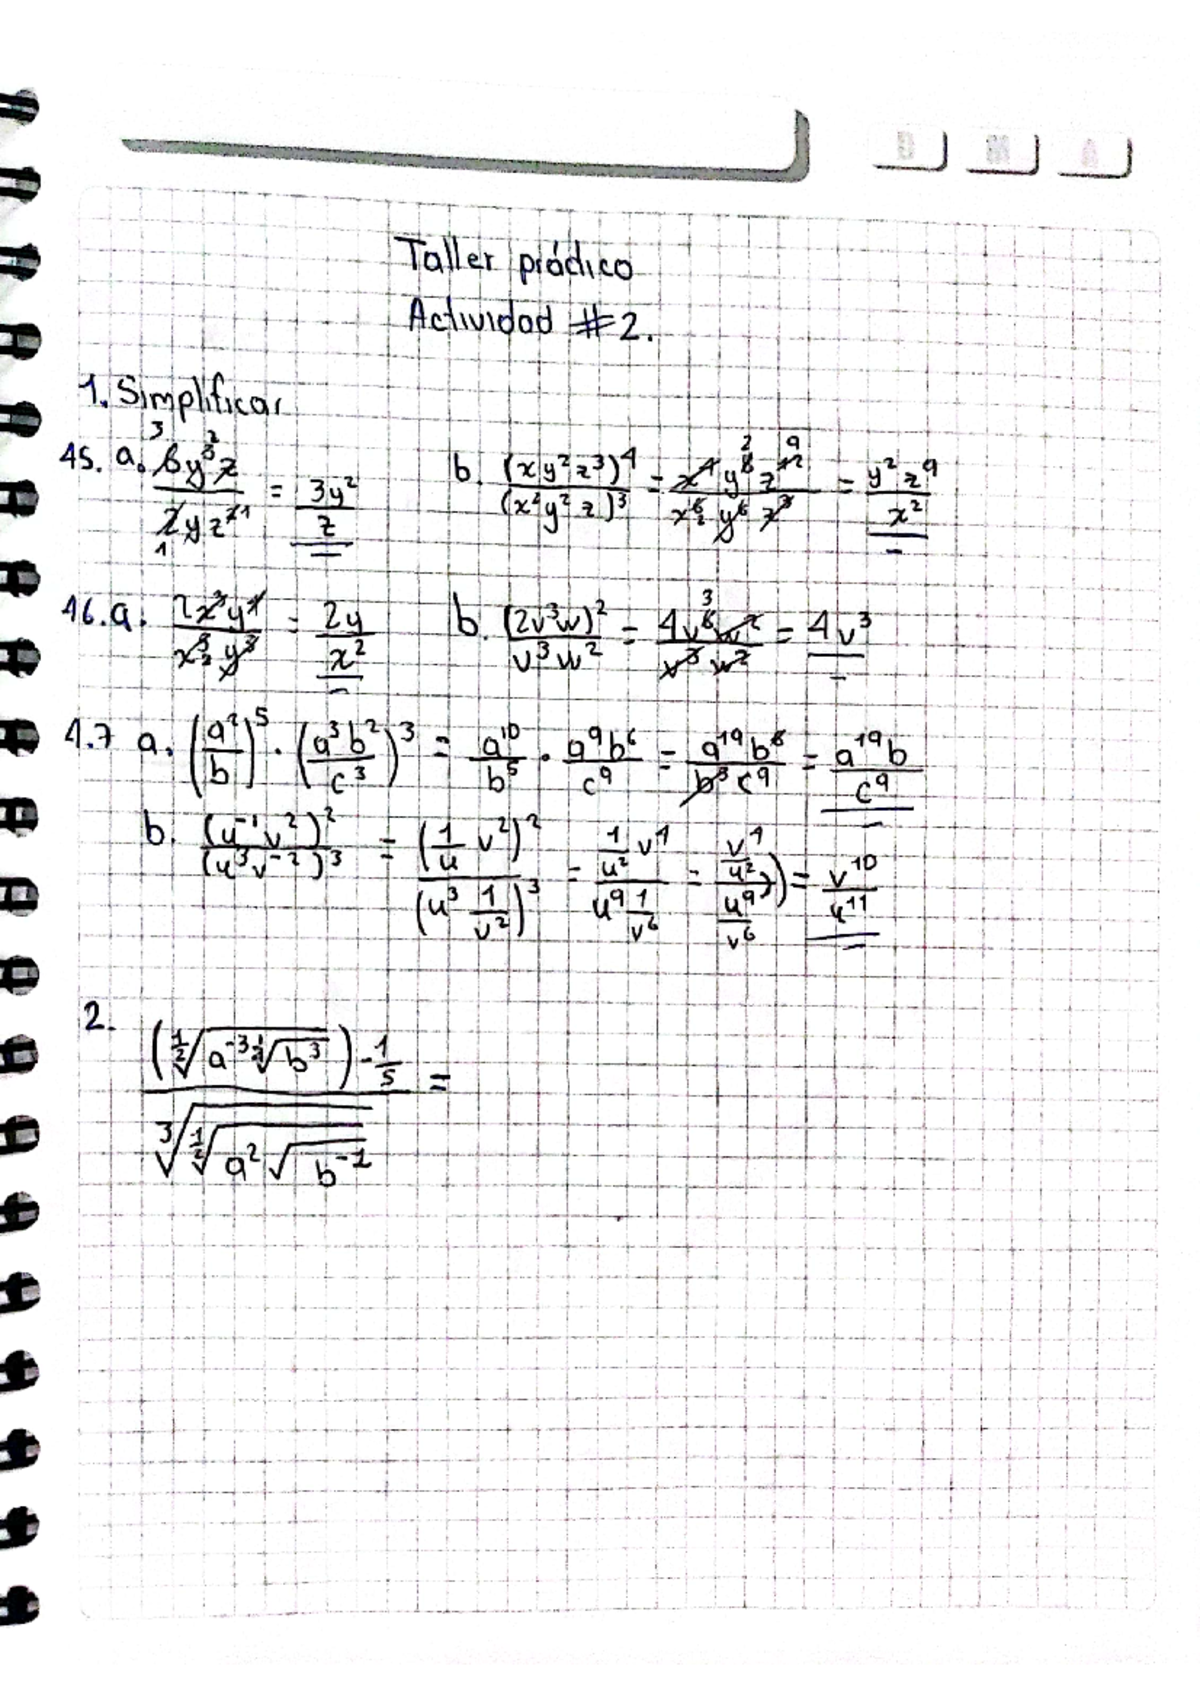 A M D
Taller práctico
Actividad #2.
1. Simplificar
45. a. 6y³z / 2yz² = 3y² / z    b. (xy²z³)⁴ / (x²y²z)³ = x⁴y⁸z¹² / x⁶y⁶z³ = y²z⁹ / x²
46. a. 2x³y⁴ / x⁵y³ = 2y / x²    b. (2v³w)² / v³w² = 4v⁶w² / v³w² = 4v³
4.7 a. (a²/b)⁵ · (a³b²/c³)³ = a¹⁰/b⁵ · a⁹b⁶/c⁹ = a¹⁹b⁶ / b⁵c⁹ = a¹⁹b / c⁹
b. (u⁻¹v²)² / (u³v⁻²)³ = (1/u v²)² / (u³ 1/v²)³ = 1/u² v⁴ / u⁹ 1/v⁶ = v⁴/u² / u⁹/v⁶ = v¹⁰ / u¹¹
2. (½√(a⁻³ ½√(b³))) - 1/5 / ³√(½√(a²√(b⁻¹))) =